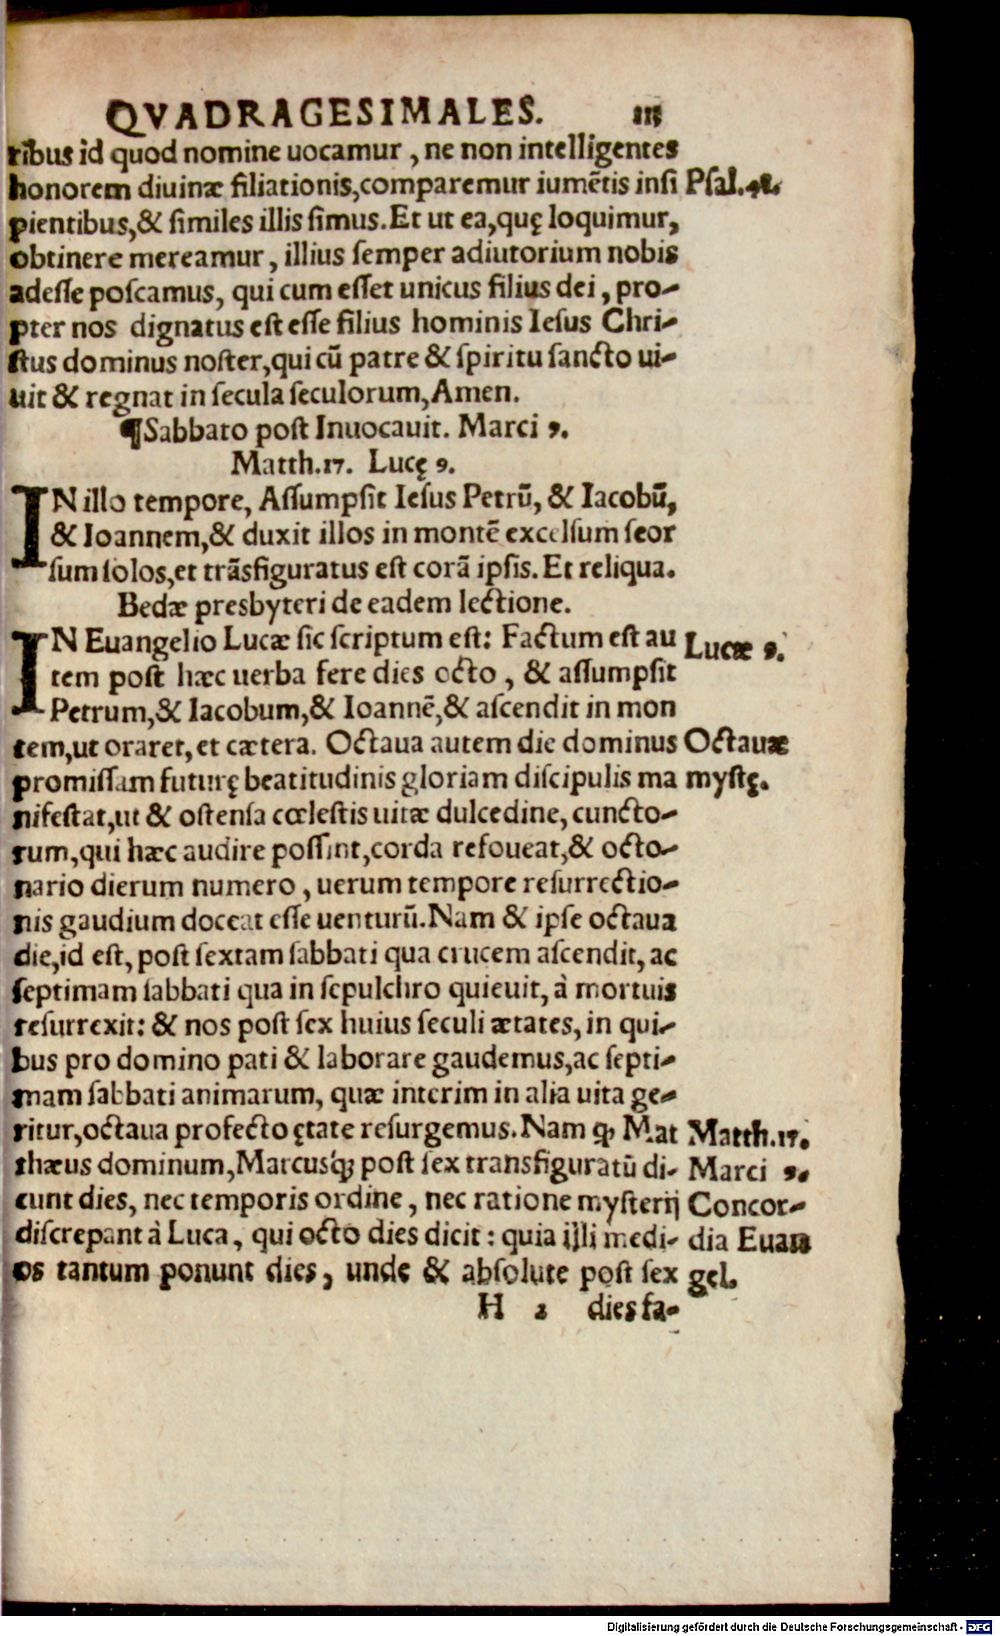 QVADRAGESIMALES. 115
ribus id quod nomine uocamur, ne non intelligentes
honorem diuinæ filiationis, comparemur iumẽtis insi Psal.48.
pientibus, & similes illis simus. Et ut ea, quę loquimur,
obtinere mereamur, illius semper adiutorium nobis
adesse poscamus, qui cum esset unicus filius dei, pro-
pter nos dignatus est esse filius hominis Iesus Chri-
stus dominus noster, qui cũ patre & spiritu sancto ui-
uit & regnat in secula seculorum, Amen.
¶Sabbato post Inuocauit. Marci 9.
Matth.17. Lucę 9.
IN illo tempore, Assumpsit Iesus Petrũ, & Iacobũ,
& Ioannem, & duxit illos in montẽ excelsum seor
sum solos, et trãsfiguratus est corã ipsis. Et reliqua.
Bedæ presbyteri de eadem lectione.
IN Euangelio Lucæ sic scriptum est: Factum est au Lucæ 9.
tem post hæc uerba fere dies octo, & assumpsit
Petrum, & Iacobum, & Ioannẽ, & ascendit in mon
tem, ut oraret, et cætera. Octaua autem die dominus Octauæ
promissam futurę beatitudinis gloriam discipulis ma mystę.
nifestat, ut & ostensa cœlestis uitæ dulcedine, cuncto-
rum, qui hæc audire possint, corda refoueat, & octo-
nario dierum numero, uerum tempore resurrectio-
nis gaudium doceat esse uenturũ. Nam & ipse octaua
die, id est, post sextam sabbati qua crucem ascendit, ac
septimam sabbati qua in sepulchro quieuit, à mortuis
resurrexit: & nos post sex huius seculi ætates, in qui-
bus pro domino pati & laborare gaudemus, ac septi-
mam sabbati animarum, quæ interim in alia uita ge-
ritur, octaua profecto ętate resurgemus. Nam ꝙ Mat Matth.17.
thæus dominum, Marcusq́ꝫ post sex transfiguratũ di- Marci 9.
cunt dies, nec temporis ordine, nec ratione mysterij Concor-
discrepant à Luca, qui octo dies dicit: quia illi medi- dia Euan
os tantum ponunt dies, unde & absolute post sex gel.
H 2 dies fa-
Digitalisierung gefördert durch die Deutsche Forschungsgemeinschaft - DFG